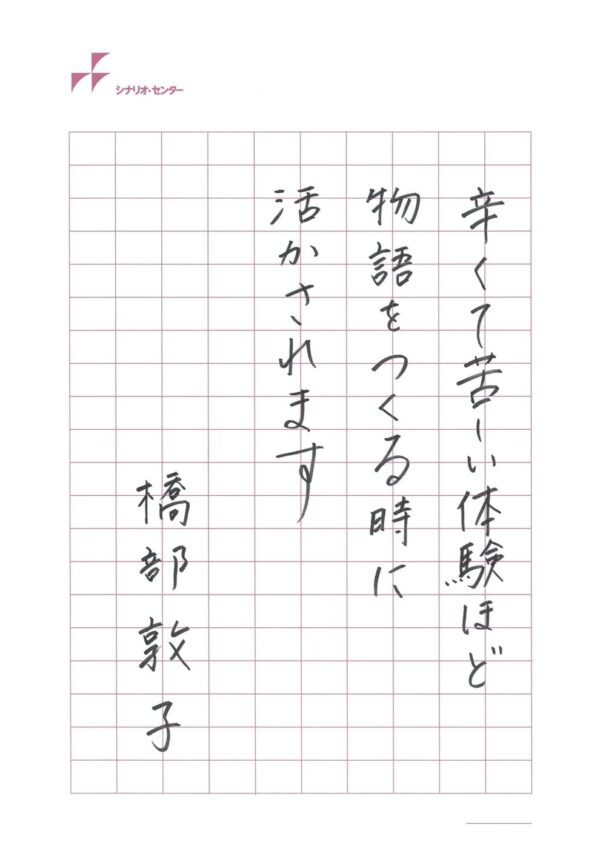 シナリオ・センター
辛くて苦しい体験ほど
物語をつくる時に
活かされます
橋部敦子